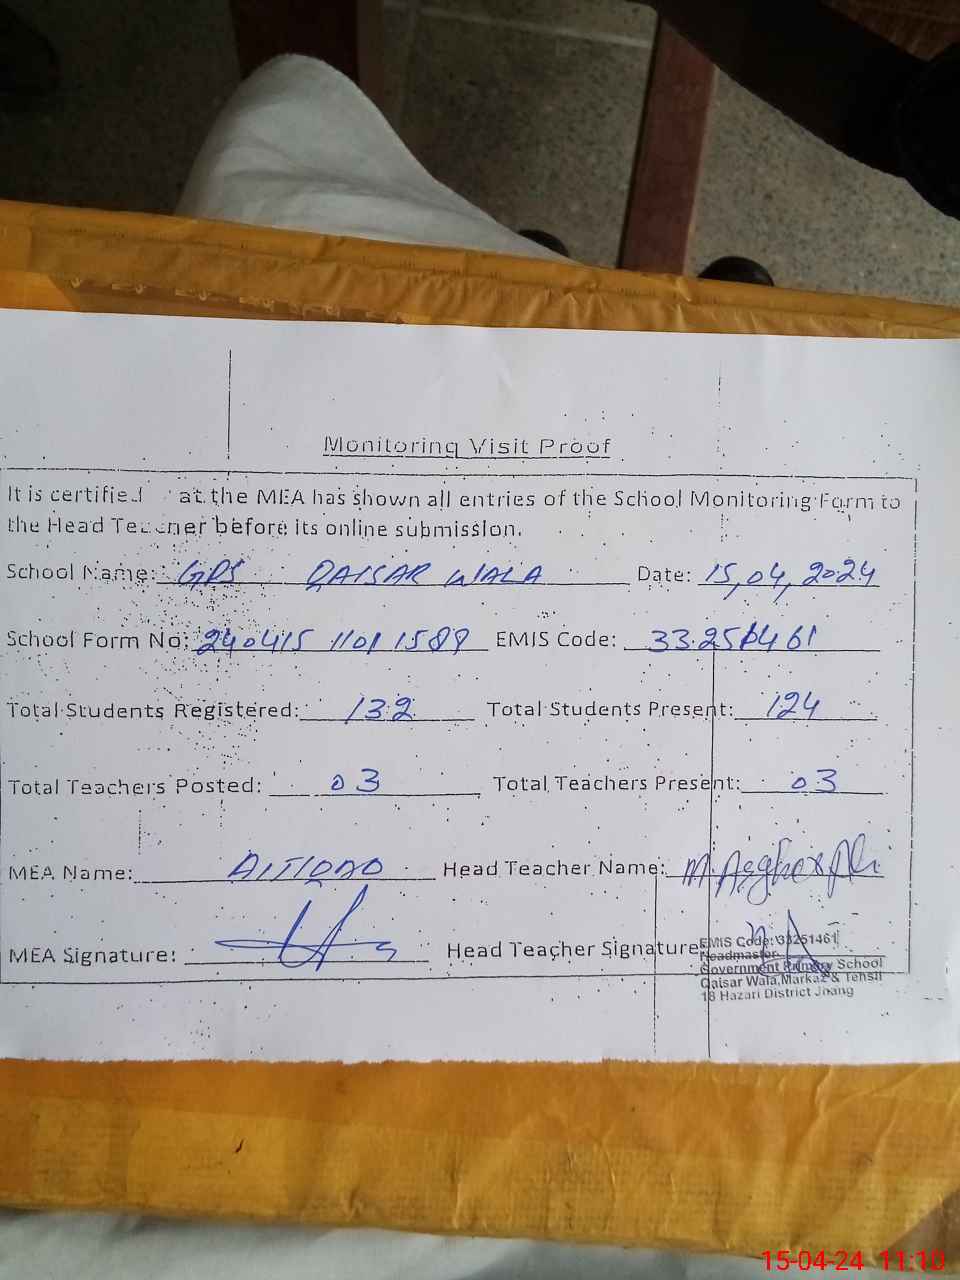 Monitoring Visit Proof
It is certified at the MEA has shown all entries of the School Monitoring Form to
the Head Teacher before its online submission.
School Name: GPS QAISAR WALA Date: 15,04,2024
School Form No: 240415 1101 1589 EMIS Code: 33251461
Total Students Registered: 132 Total Students Present: 124
Total Teachers Posted: 03 Total Teachers Present: 03
MEA Name: Head Teacher Name: M. Asghar Ali
MEA Signature: Head Teacher Signature
EMIS Code: 33251461
Headmaster
Government Primary School
Qaisar Wala, Markaz & Tehsil
18 Hazari District Jhang
15-04-24 11:10